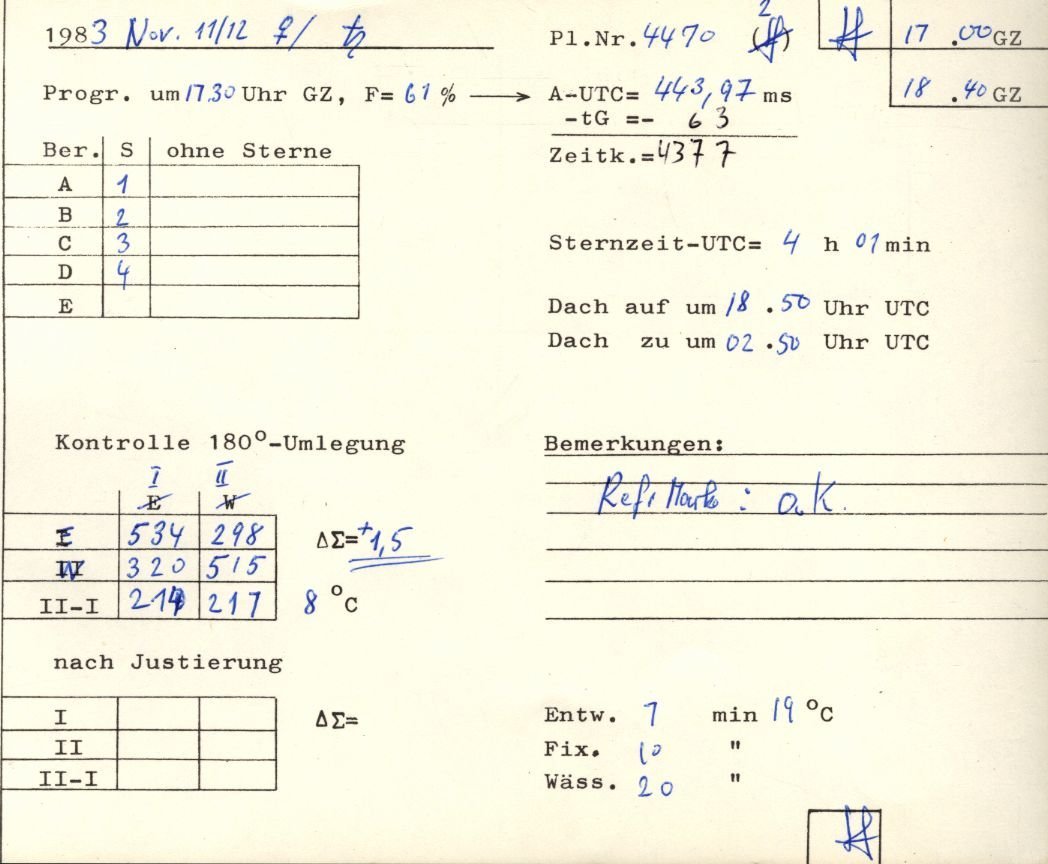 1983 Nov. 11/12 ♀/ ♄ Pl.Nr. 4470 17 .00 GZ
2
Progr. um 17.30 Uhr GZ, F= 61 % → A-UTC= 443,97 ms 18 .40 GZ
-tG =- 63
Zeitk.= 4377
Ber. S ohne Sterne
A 1
B 2
C 3
D 4
E
Sternzeit-UTC= 4 h 01 min
Dach auf um 18 .50 Uhr UTC
Dach zu um 02 .50 Uhr UTC
Kontrolle 180°-Umlegung
I II
E W
E 534 298 ΔΣ=+1,5
W 320 515
II-I 214 217 8 °C
Bemerkungen:
Ref. Marke : o.K.
nach Justierung
I ΔΣ=
II
II-I
Entw. 7 min 19 °C
Fix. 10 "
Wäss. 20 "